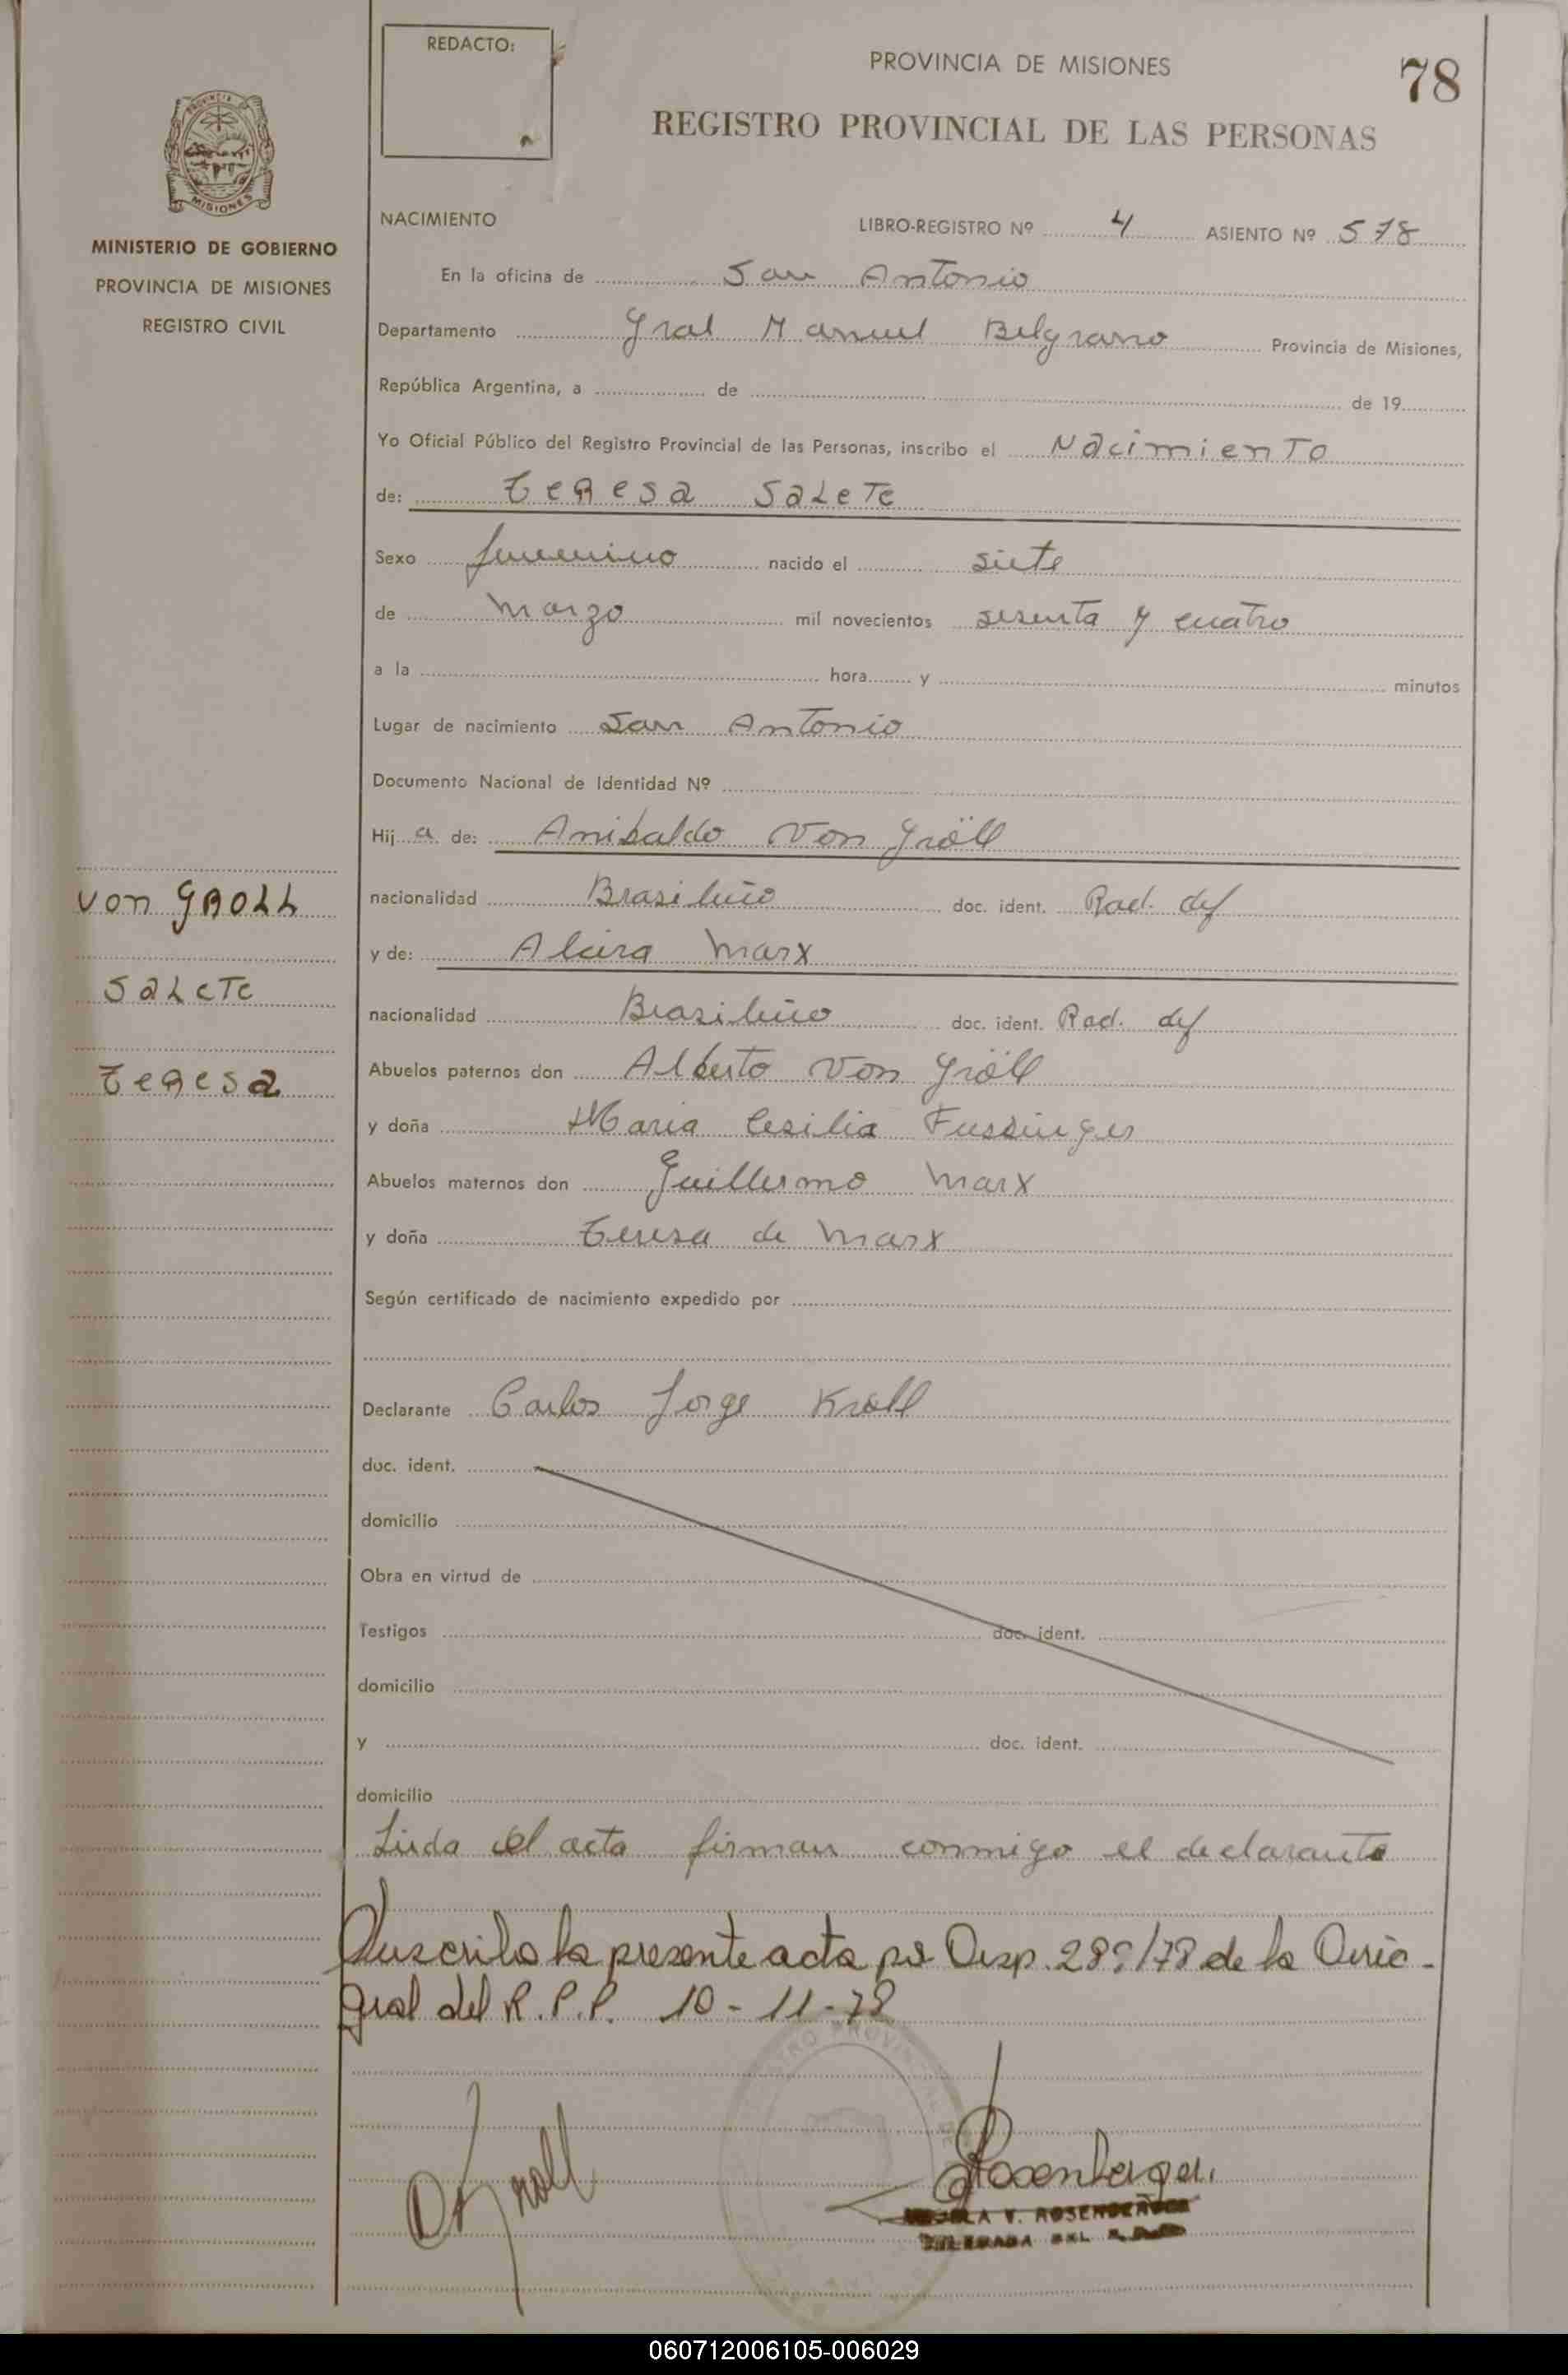 REDACTO:
PROVINCIA DE MISIONES
78
REGISTRO PROVINCIAL DE LAS PERSONAS
MISIONES
MINISTERIO DE GOBIERNO
PROVINCIA DE MISIONES
REGISTRO CIVIL
NACIMIENTO LIBRO-REGISTRO Nº 4 ASIENTO Nº 578
En la oficina de San Antonio
Departamento Gral Manuel Belgrano Provincia de Misiones,
República Argentina, a de de 19
Yo Oficial Público del Registro Provincial de las Personas, inscribo el Nacimiento
de: Teresa Salete
Sexo femenino nacido el siete
de marzo mil novecientos sesenta y cuatro
a la hora y minutos
Lugar de nacimiento San Antonio
Documento Nacional de Identidad Nº
Hij a de: Anibaldo Von Gröll
nacionalidad Brasileño doc. ident. Rad. def
y de: Alcira Marx
nacionalidad Brasileño doc. ident. Rad. def
Abuelos paternos don Alberto Von Gröll
y doña Maria Cesilia Fussinger
Abuelos maternos don Guillermo Marx
y doña Teresa de Marx
Según certificado de nacimiento expedido por
Declarante Carlos Jorge Kröll
doc. ident.
domicilio
Obra en virtud de
Testigos doc. ident.
domicilio
y doc. ident.
domicilio
von GROLL
Salete
Teresa
Leida el acta firman conmigo el declarante
Suscribo la presente acta por Disp. /78 de la Direc-
gral del R.P.P. 10-11-78
Kroll
Rosenberger
V. ROSENBERGER
DELEGADA DEL
060712006105-006029